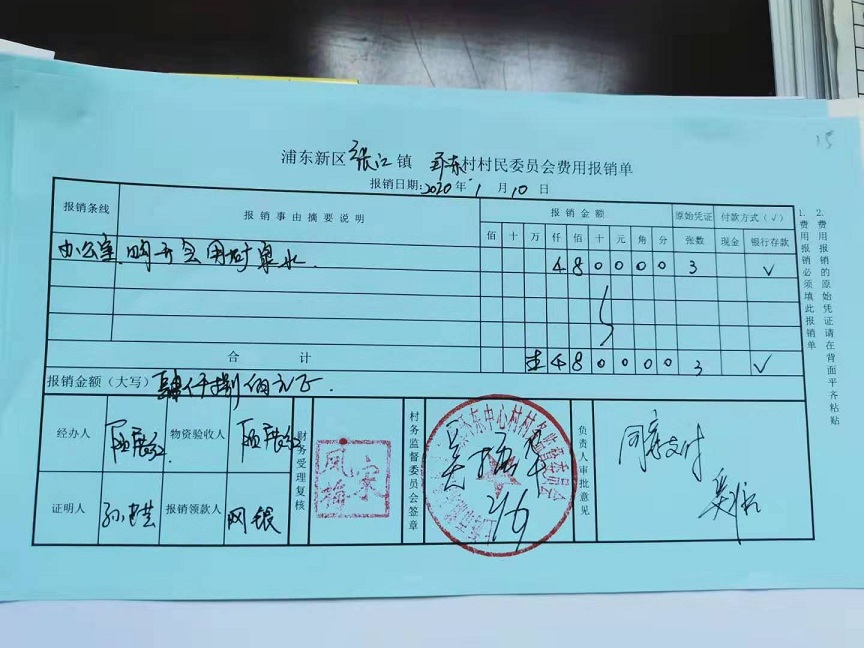 15
浦东新区张江镇 环东村村民委员会费用报销单
报销日期:2020年1月10日
报销条线 报销事由摘要说明 报销金额 原始凭证 付款方式(√)
佰 十 万 仟 佰 十 元 角 分 张数 现金 银行存款
办公室 购开会用矿泉水. 4 8 0 0 0 0 3 √
合计 4 8 0 0 0 0 3 √
报销金额(大写) 肆仟捌佰元正.
经办人 物资验收人 财务受理复核 村务监督委员会签章 负责人审批意见
同意支付
凤梅 宋
证明人 报销领款人 网银
1. 费用报销必须填此报销单
2. 费用报销的原始凭证请在背面平齐粘贴